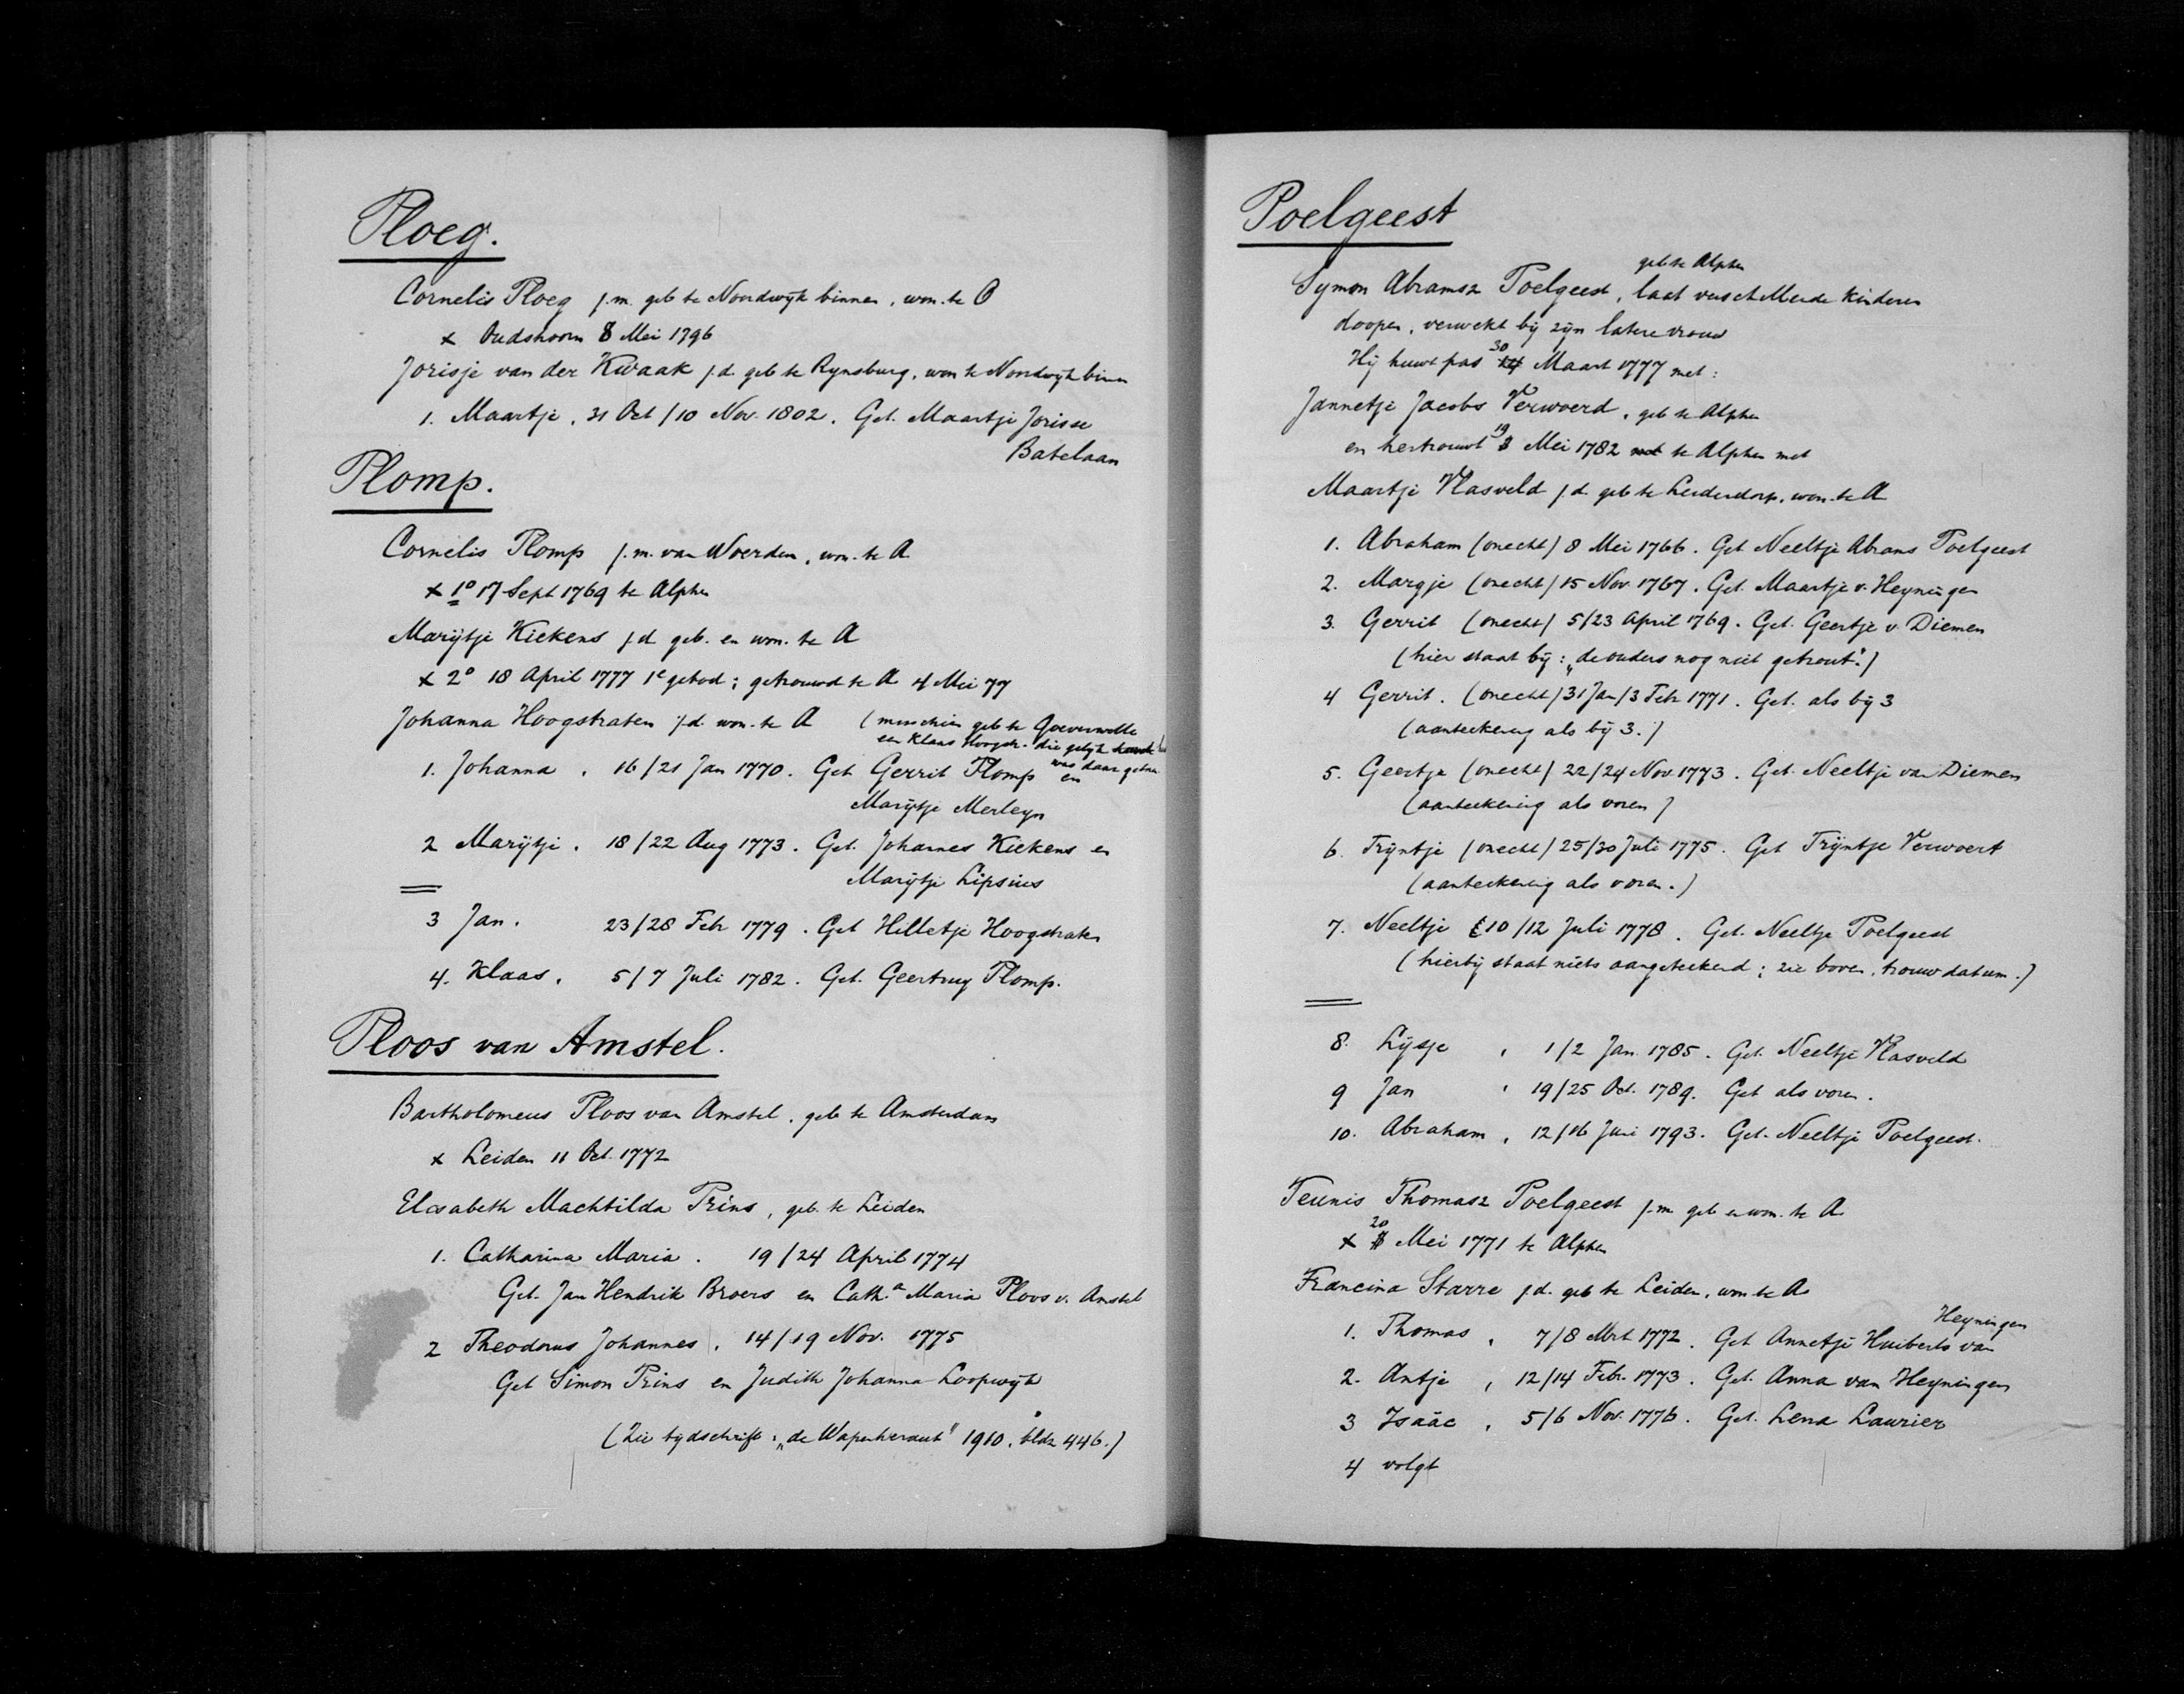 Ploeg.
Cornelis Ploeg j.m. geb te Noordwijk binnen, won. te O
x Oudshoorn 8 Mei 1796
Jorisje van der Kwaak j.d. geb te Rynsburg, won te Noordwijk binn
1. Maartje, 31 Oct / 10 Nov. 1802. Get. Maartje Jorisse
Batelaan
Plomp.
Cornelis Plomp j.m. van Woerden, won. te A
x 1o 17 Sept 1769 te Alphen
Marijtje Kiekens j.d. geb. en won. te A
x 2o 18 April 1777 1e gebod; getrouwd te A 4 Mei 77
Johanna Hoogstraten j.d. won. te A (misschien geb te Goeverwelle
een Klaas Hoogstr. die gelijk
was daar getrou
1. Johanna, 16/21 Jan 1770. Get Gerrit Plomp en
Marijtje Merleyn
2 Marijtje. 18/22 Aug 1773. Get. Johannes Kiekens en
Marijtje Lipsius
3 Jan. 23/28 Febr 1779. Get Hilletje Hoogstraten
4. Klaas, 5/7 Juli 1782. Get. Geertruy Plomp.
Ploos van Amstel.
Bartholomeus Ploos van Amstel, geb te Amsterdam
x Leiden 11 Oct. 1772
Elisabeth Machtilda Prins, geb. te Leiden
1. Catharina Maria. 19/24 April 1774
Get. Jan Hendrik Broers en Cath.a Maria Ploos v. Amstel
2 Theodorus Johannes, 14/19 Nov. 1775
Get Simon Prins en Judith Johanna Loopwijk
(Zie tijdschrift: „de Wapenheraut" 1910, bldz 446.)
Poelgeest
geb te Alphen
Symon Abramsz Poelgeest, laat verschillende kinderen
doopen, verwekt bij zijn latere vrouw
Hij huwt pas 30 14 Maart 1777 met:
Jannetje Jacobs Verwoerd, geb te Alphen
en hertrouwt 19 3 Mei 1782 met te Alphen met
Maartje Vlasveld j.d. geb te Leiderdorp, won. te A
1. Abraham (onecht) 8 Mei 1766. Get Neeltje Abrams Poelgeest
2. Margje (onecht) 15 Nov. 1767. Get. Maartje v. Heyningen
3. Gerrit (onecht) 5/23 April 1769. Get. Geertje v. Diemen
(hier staat bij: „de ouders nog niet getrout".)
4 Gerrit. (onecht) 31 Jan/3 Febr 1771. Get. als bij 3
(aanteekening als bij 3.)
5. Geertje (onecht) 22/24 Nov. 1773. Get. Neeltje van Diemen
(aanteekening als voren)
6. Trijntje (onecht) 25/30 Juli 1775. Get Trijntje Verwoert
(aanteekening als voren.)
7. Neeltje 10/12 Juli 1778. Get. Neeltje Poelgeest
(hierbij staat niets aangeteekend; zie boven, trouwdatum.)
8. Lijsje, 1/2 Jan. 1785. Get. Neeltje Vlasveld
9 Jan, 19/25 Oct. 1789. Get als voren.
10. Abraham, 12/16 Juni 1793. Get. Neeltje Poelgeest.
Teunis Thomasz Poelgeest j.m. geb en won. te A
x 20 Mei 1771 te Alphen
Francina Starre j.d. geb te Leiden, won te A
1. Thomas, 7/8 Mrt 1772. Get Annetje Huiberts van
Heyningen
2. Antje, 12/14 Febr. 1773. Get. Anna van Heyningen
3 Isaäc, 5/6 Nov. 1776. Get. Lena Laurier
4 volgt